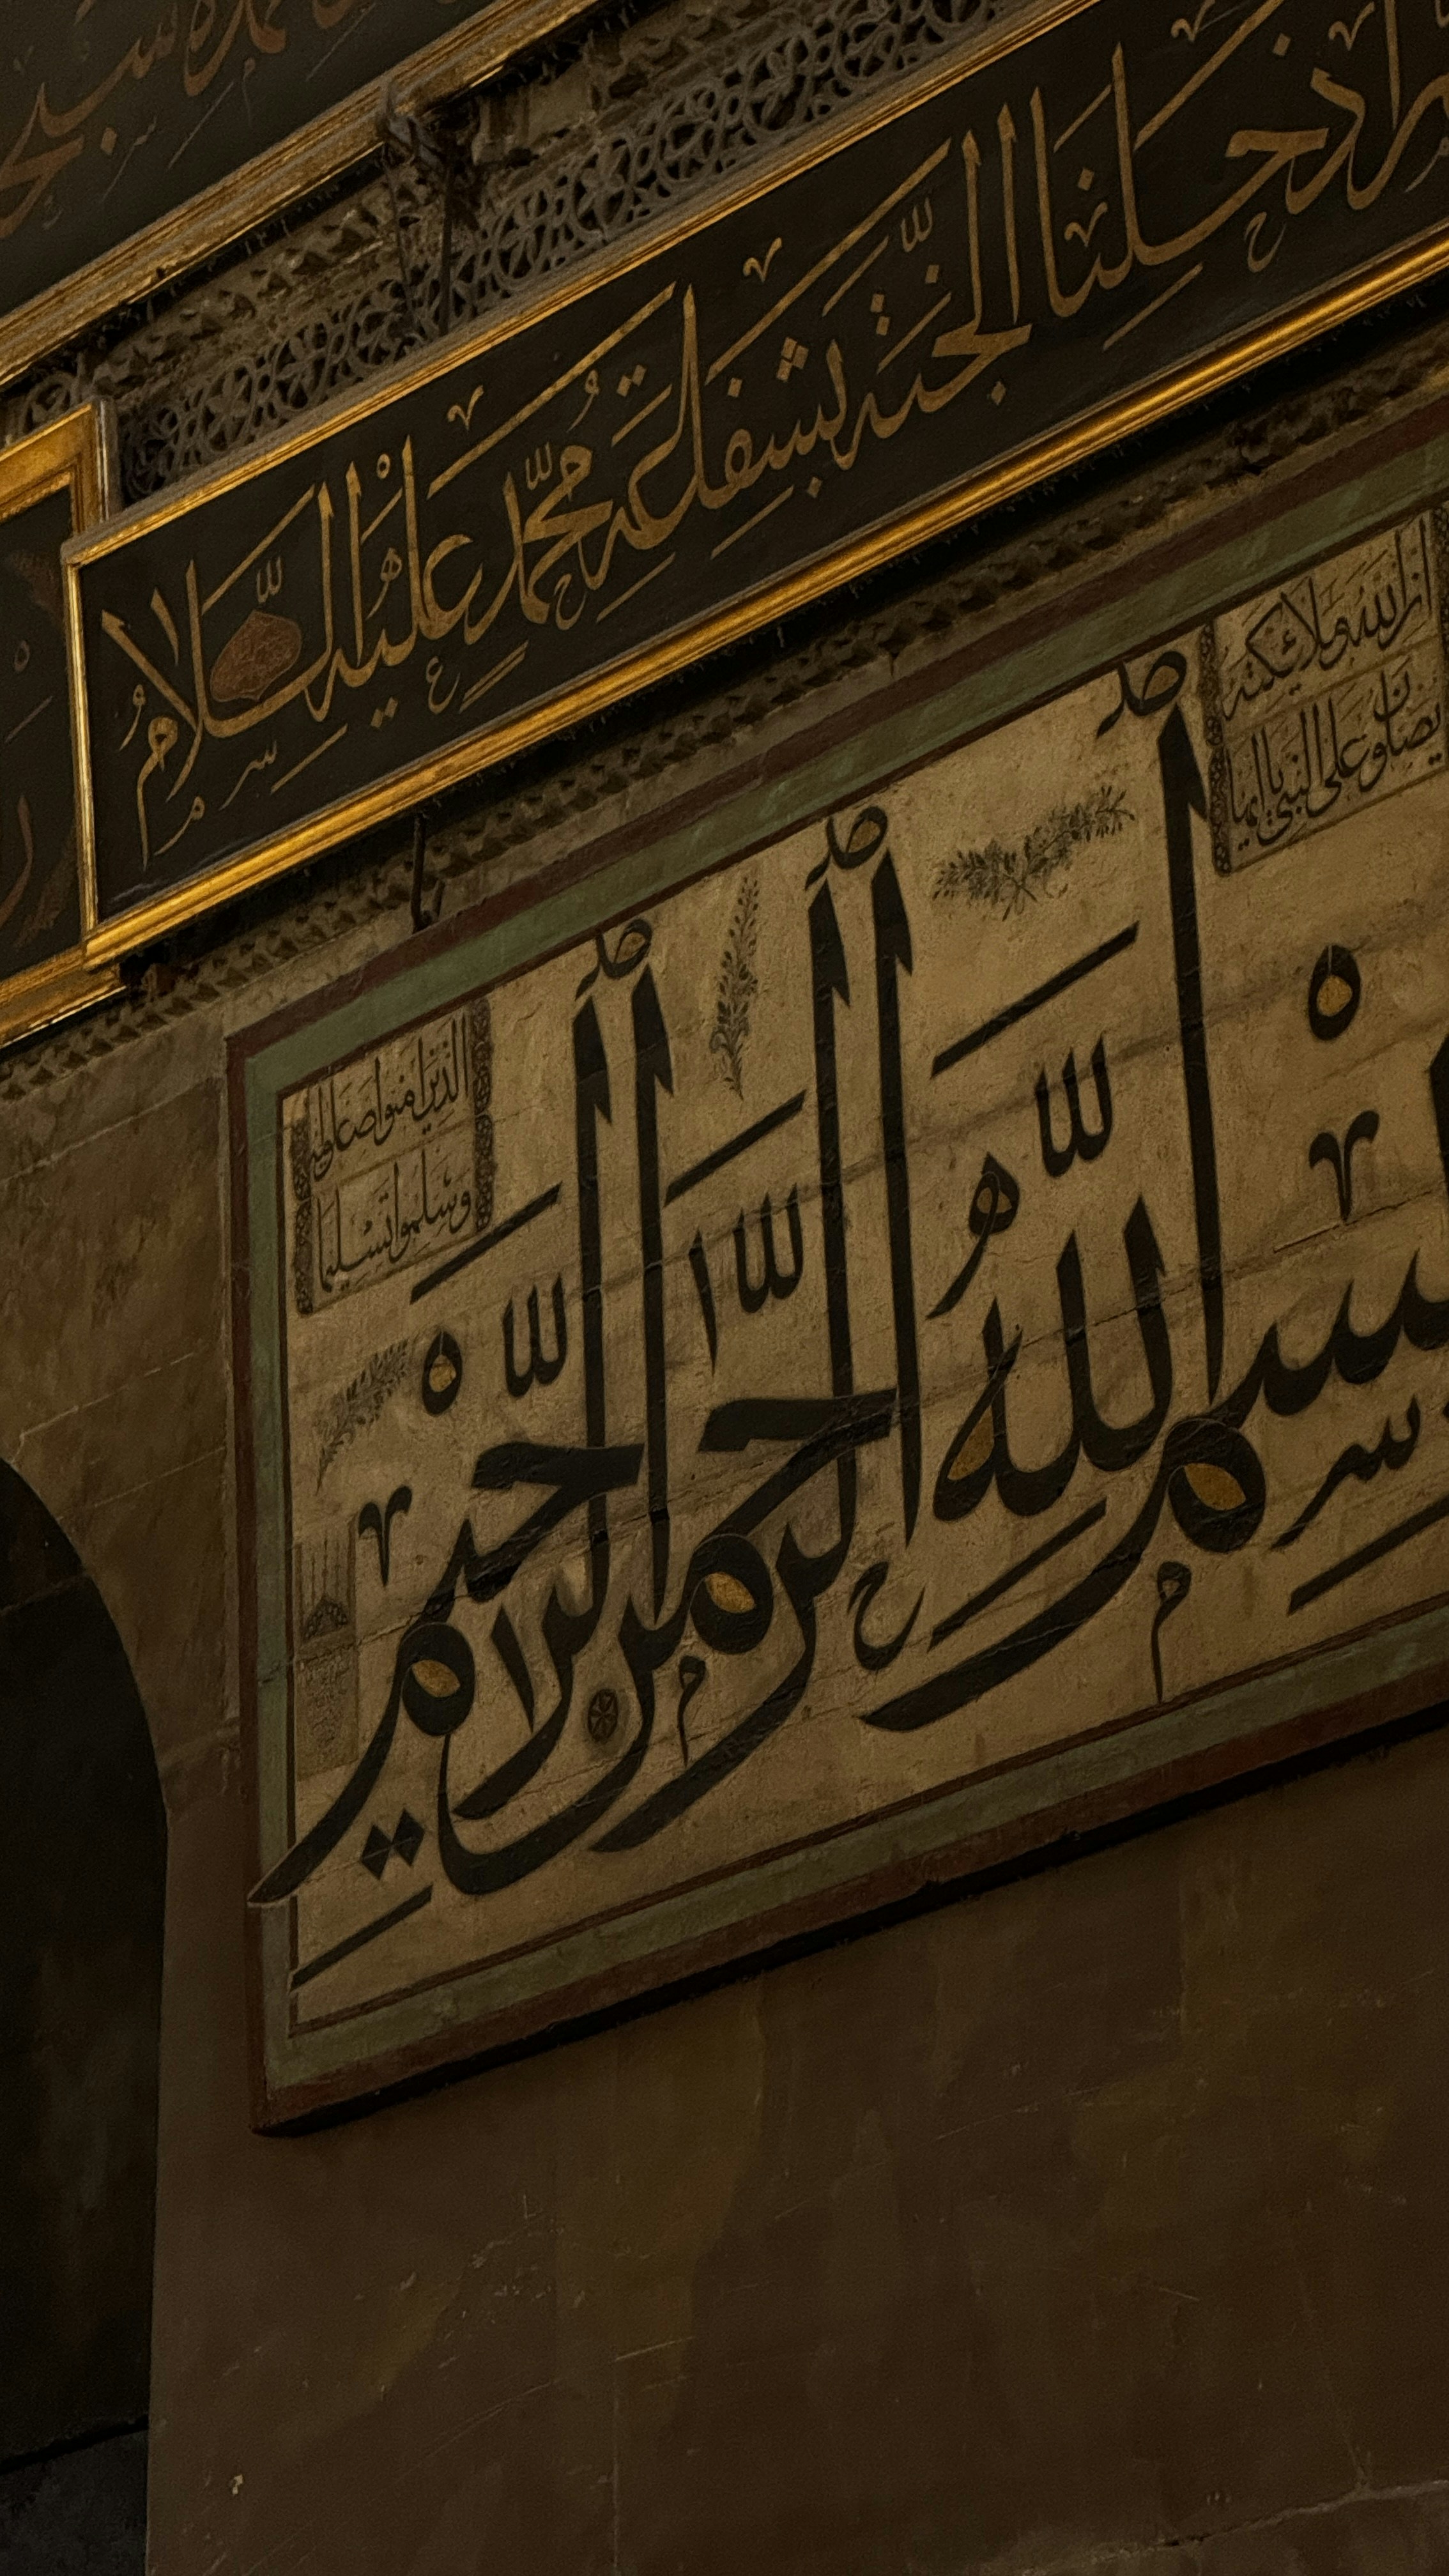 ادخلنا الجنة بشفاعة محمد عليه السلام
ان الله وملائكته
يصلون على النبي يا ايها
الذين امنوا صلوا عليه
وسلموا تسليما
بسم الله الرحمن الرحيم